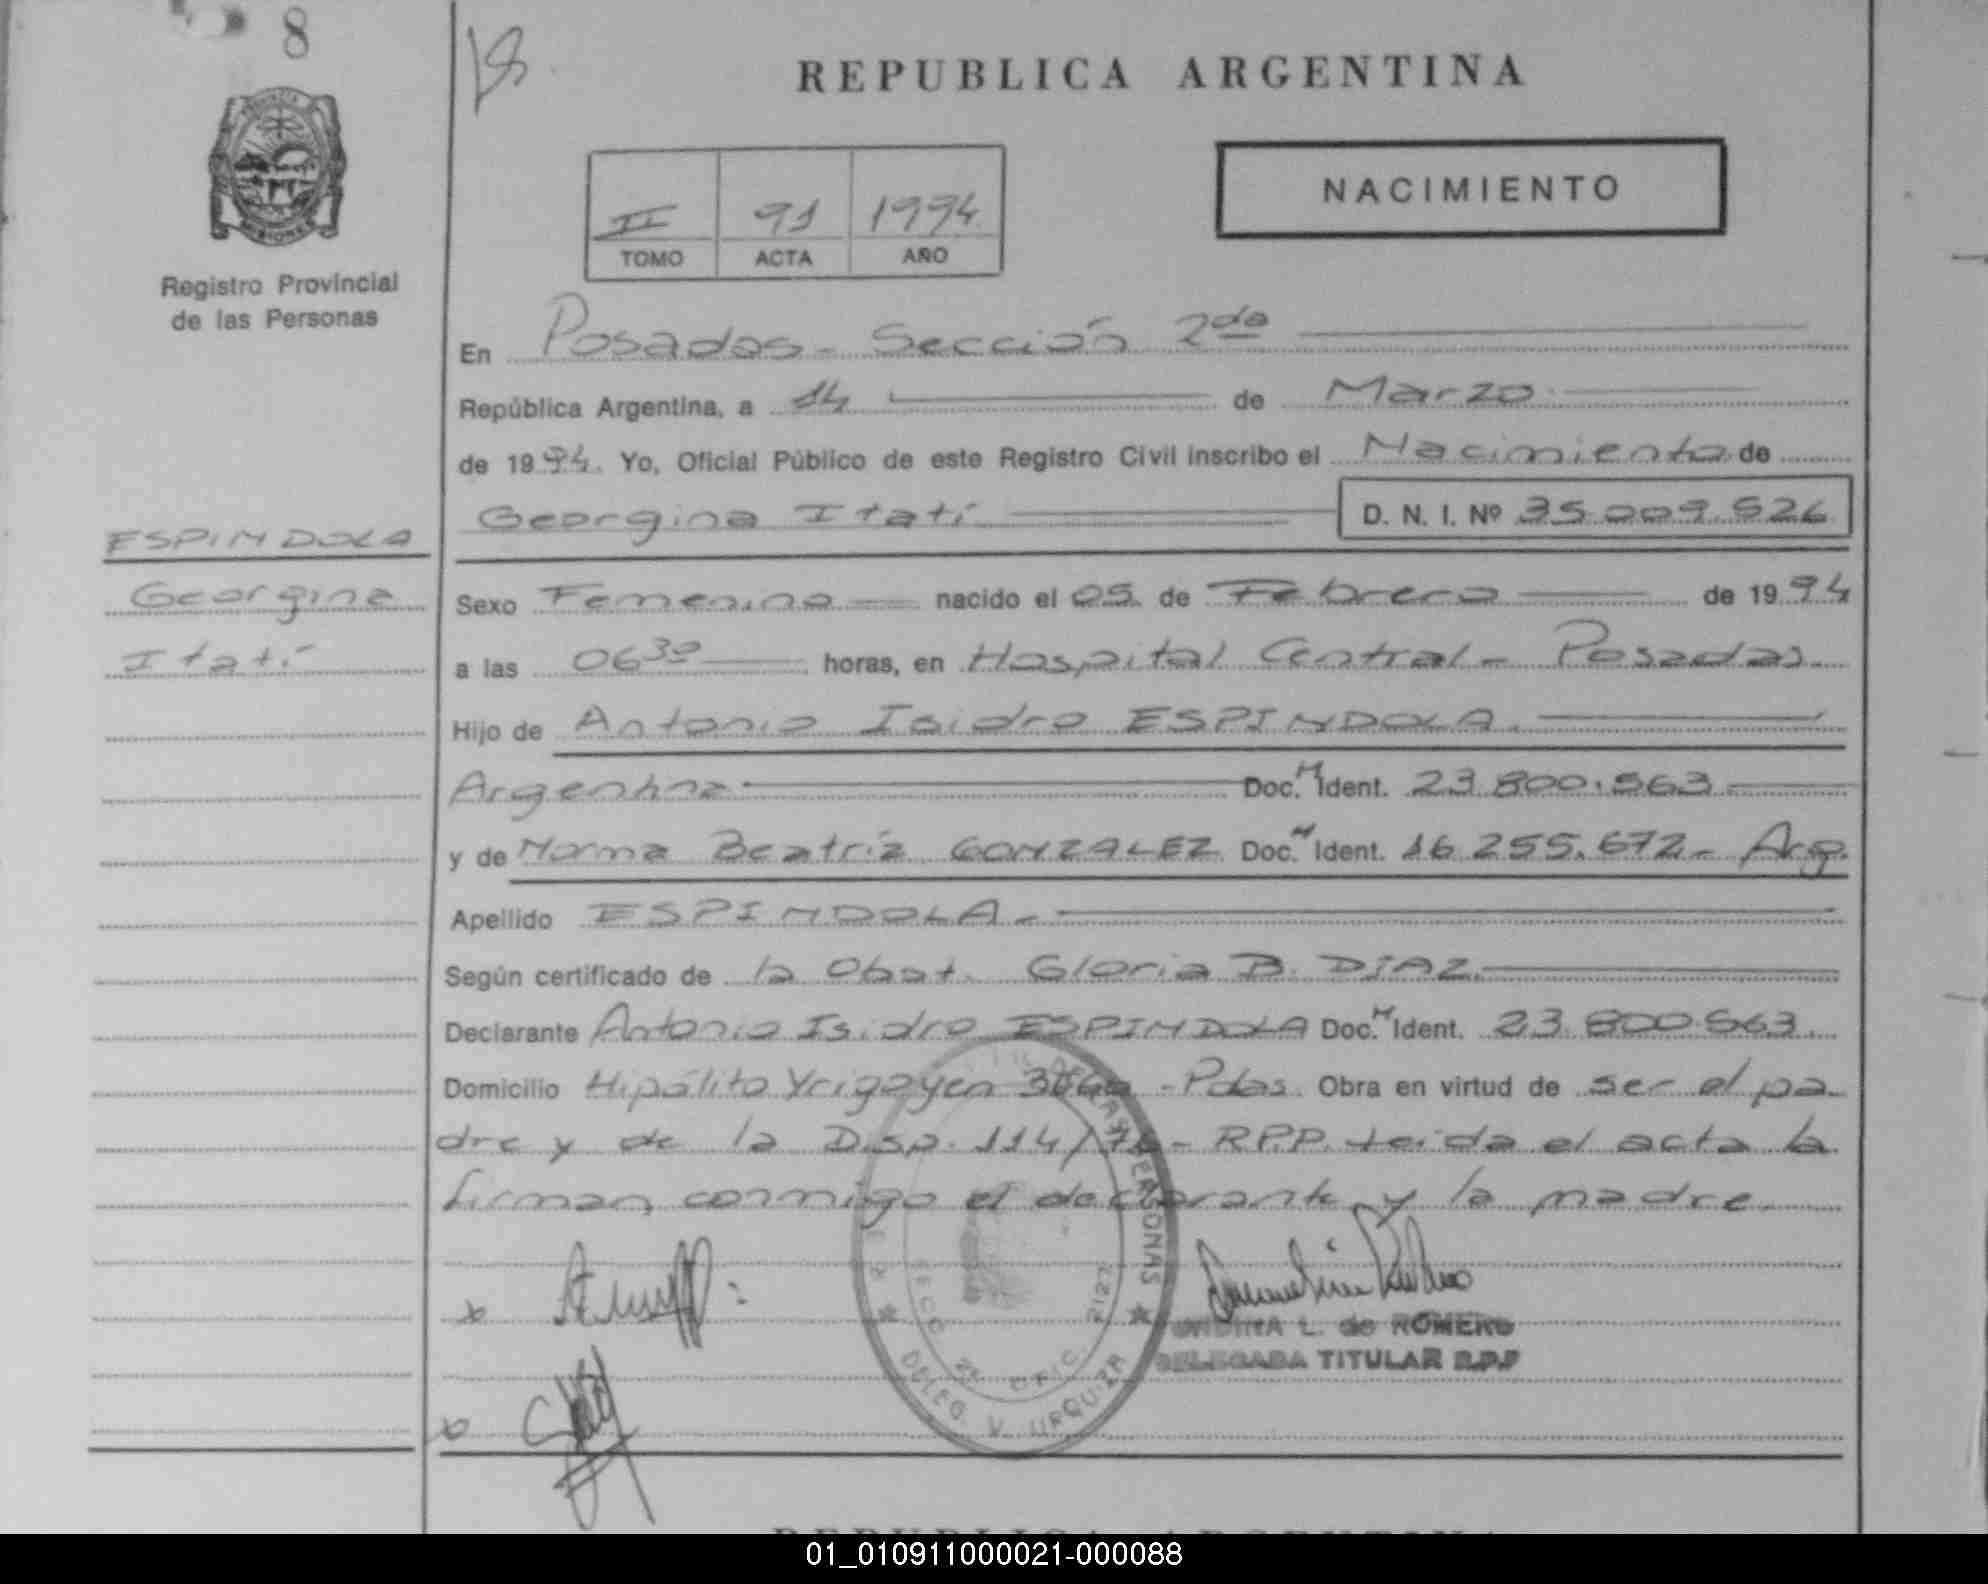 8
REPUBLICA ARGENTINA
NACIMIENTO
II 91 1994
TOMO ACTA AÑO
MISIONES
Registro Provincial
de las Personas
En Posadas - Sección 2da
República Argentina, a 14 de Marzo
de 1994. Yo, Oficial Público de este Registro Civil inscribo el Nacimiento de
Georgina Itatí D. N. I. Nº 35.009.526
ESPINDOLA
Georgina
Itatí
Sexo Femenino nacido el 05 de Febrero de 1994
a las 06³⁰ horas, en Hospital Central - Posadas.
Hijo de Antonio Isidro ESPINDOLA.
Argentina Doc. N Ident. 23.800.563
y de Norma Beatríz GONZALEZ Doc. N Ident. 16.255.672 - Arg.
Apellido ESPINDOLA -
Según certificado de la Obst. Gloria B. DIAZ.
Declarante Antonio Isidro ESPINDOLA Doc. N Ident. 23.800.563.
Domicilio Hipólito Yrigoyen - Pdas. Obra en virtud de ser el pa-
dre y de la Disp. 114/74 - R.P.P. Leída el acta la
firman conmigo el declarante y la madre.
PERSONAS
SECC 2ª OFIC. 2127
DELEG. V. URQUIZA
L. de ROMERO
DELEGADA TITULAR R.P.P
01_010911000021-000088